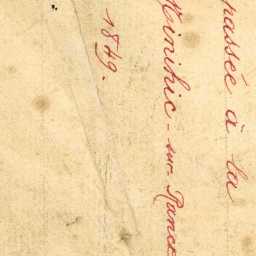 passée à la
Minihic-sur-Rance
1849.